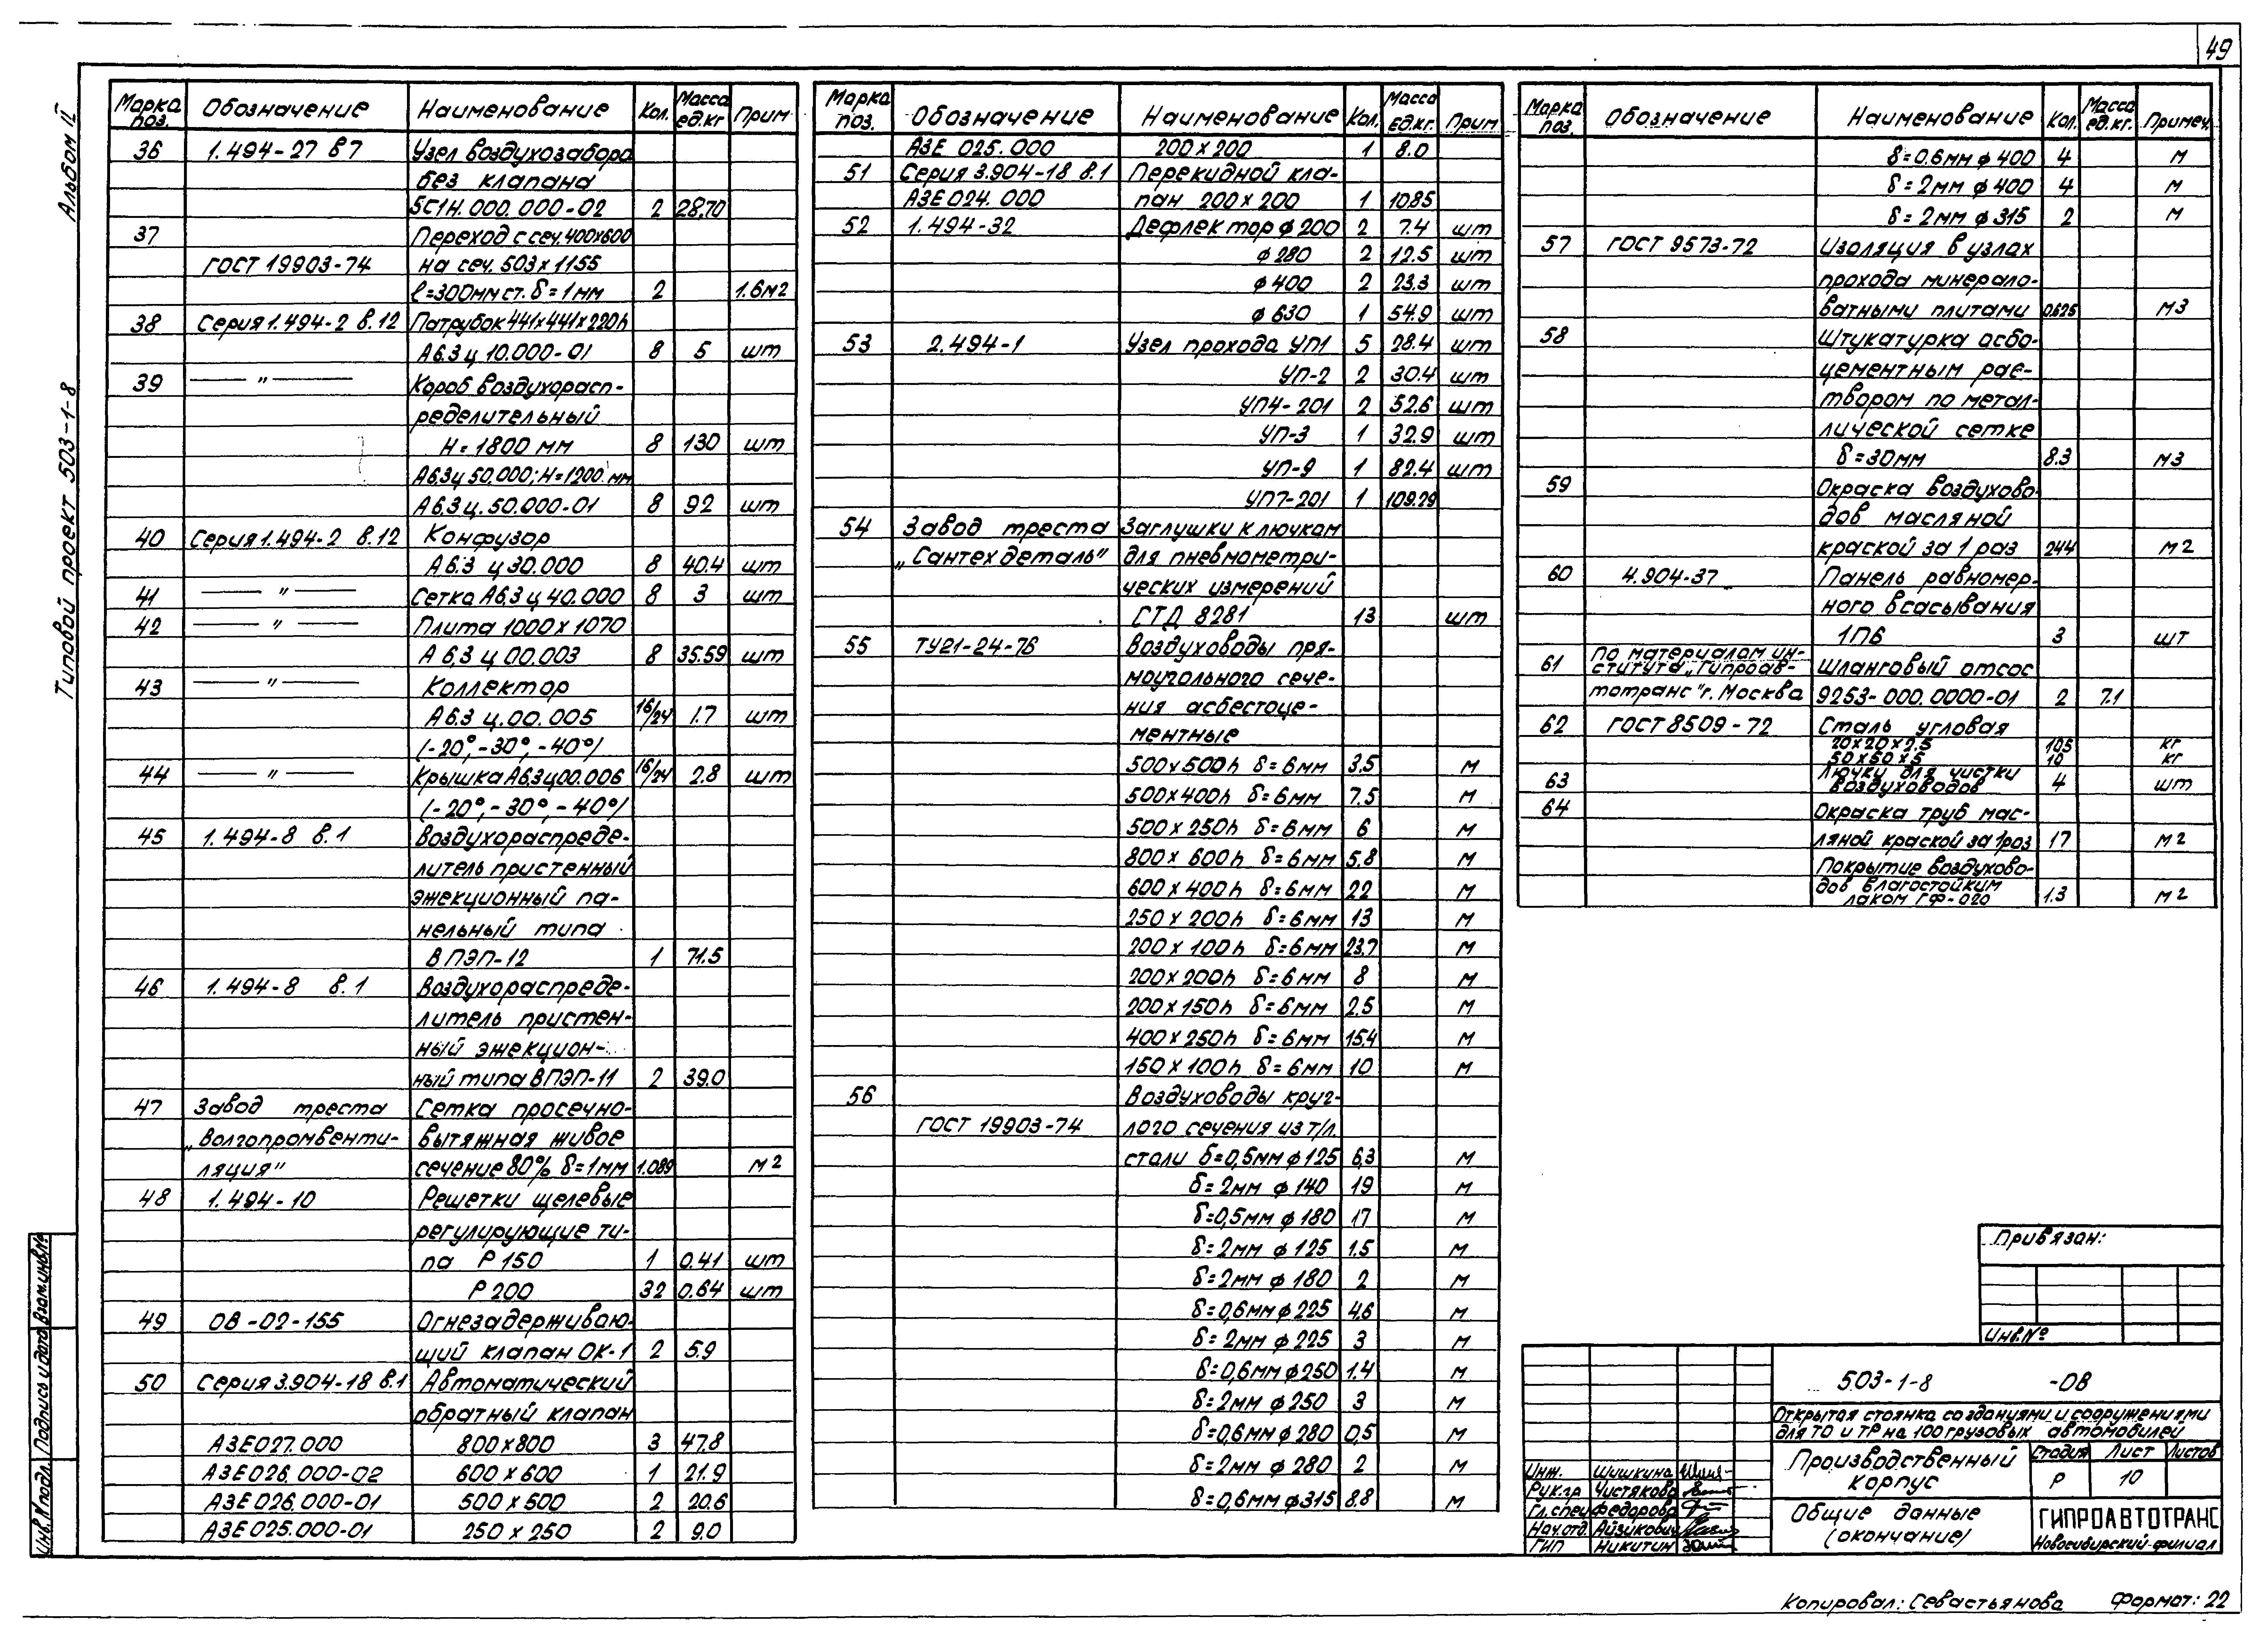 49
Альбом II
Типовой проект 503-1-8
Марка поз. Обозначение Наименование Кол. Масса ед.кг Прим
36 1.494-27 в7 Узел воздухозабора
без клапана
5С1Н.000.000-02 2 28.70
37 Переход с сеч. 400х600
ГОСТ 19903-74 на сеч. 503х1155
ℓ=300мм ст. δ=1мм 2 1.6м2
38 Серия 1.494-2 в.12 Патрубок 441х441х220h
А6.3ц 10.000-01 8 5 шт
39 —"— Короб воздухорасп-
ределительный
Н=1800 мм 8 130 шт
А6.3ц 50.000; Н=1200 мм
А6.3ц. 50.000-01 8 92 шт
40 Серия 1.494-2 в.12 Конфузор
А6.3 ц 30.000 8 40.4 шт
41 —"— Сетка А6.3 ц 40.000 8 3 шт
42 —"— Плита 1000х1070
А 6,3 ц 00.003 8 35.59 шт
43 —"— Коллектор
А6.3 ц.00.005 16/24 1.7 шт
(-20°,-30°,-40°)
44 —"— Крышка А6.3ц00.006 16/24 2.8 шт
(-20°,-30°,-40°)
45 1.494-8 в.1 Воздухораспреде-
литель пристенный
эжекционный па-
нельный типа
ВПЭП-12 1 71.5
46 1.494-8 в.1 Воздухораспреде-
литель пристен-
ный эжекцион-
ный типа ВПЭП-11 2 39.0
47 Завод треста Сетка просечно-
„Волгопромвенти- вытяжная живое
ляция" сечение 80% δ=1мм 1.089 м2
48 1.494-10 Решетки щелевые
регулирующие ти-
па Р150 1 0.41 шт
Р200 32 0.64 шт
49 ОВ-02-155 Огнезадерживаю-
щий клапан ОК-1 2 5.9
50 Серия 3.904-18 в.1 Автоматический
обратный клапан
АЗЕ027.000 800х800 3 47.8
АЗЕ026.000-02 600х600 1 21.9
АЗЕ026.000-01 500х500 2 20.6
АЗЕ025.000-01 250х250 2 9.0
Марка поз. Обозначение Наименование Кол. Масса ед.кг. Прим
АЗЕ 025.000 200х200 1 8.0
51 Серия 3.904-18 в.1 Перекидной кла-
АЗЕ024.000 пан 200х200 1 10.85
52 1.494-32 Дефлектор ф200 2 7.4 шт
ф280 2 12.5 шт
ф400 2 23.3 шт
ф630 1 54.9 шт
53 2.494-1 Узел прохода УП1 5 28.4 шт
УП-2 2 30.4 шт
УП4-201 2 52.6 шт
УП-3 1 32.9 шт
УП-9 1 82.4 шт
УП7-201 1 109.29
54 Завод треста Заглушки к лючкам
„Сантехдеталь" для пневмометри-
ческих измерений
СТД 8281 13 шт
55 ТУ21-24-76 Воздуховоды пря-
моугольного сече-
ния асбестоце-
ментные
500х500h δ=6мм 3.5 м
500х400h δ=6мм 7.5 м
500х250h δ=6мм 6 м
800х600h δ=6мм 5.8 м
600х400h δ=6мм 22 м
250х200h δ=6мм 13 м
200х100h δ=6мм 23.7 м
200х200h δ=6мм 8 м
200х150h δ=6мм 2.5 м
400х250h δ=6мм 15.4 м
150х100h δ=6мм 10 м
56 Воздуховоды круг-
ГОСТ 19903-74 лого сечения из т/л.
стали δ=0,5мм ф125 6,3 м
δ=2мм ф140 19 м
δ=0,5мм ф180 17 м
δ=2мм ф125 1.5 м
δ=2мм ф180 2 м
δ=0,6мм ф225 4,6 м
δ=2мм ф225 3 м
δ=0,6мм ф250 1.4 м
δ=2мм ф250 3 м
δ=0,6мм ф280 0,5 м
δ=2мм ф280 2 м
δ=0,6мм ф315 8.8 м
Марка поз. Обозначение Наименование Кол. Масса ед.кг. Примеч.
δ=0.6мм ф400 4 м
δ=2мм ф400 4 м
δ=2мм ф315 2 м
57 ГОСТ 9573-72 Изоляция в узлах
прохода минерало-
ватными плитами 0.625 м3
58 Штукатурка асбо-
цементным рас-
твором по метал-
лической сетке
δ=30мм 8.3 м3
59 Окраска воздухово-
дов масляной
краской за 1 раз 244 м2
60 4.904-37 Панель равномер-
ного всасывания
1П6 3 шт
61 По материалам ин-
ститута „Гипроав- Шланговый отсос
тотранс" г. Москва 9253-000.0000-01 2 7.1
62 ГОСТ 8509-72 Сталь угловая
20х20х2.5 105 кг
50х50х5 10 кг
63 Лючки для чистки
воздуховодов 4 шт
64 Окраска труб мас-
ляной краской за 1раз 17 м2
Покрытие воздухово-
дов влагостойким
лаком ГФ-020 1.3 м2
Привязан:
Инв.№
503-1-8 -ОВ
Открытая стоянка со зданиями и сооружениями
для ТО и ТР на 100 грузовых автомобилей
Производственный корпус
Стадия Лист Листов
Р 10
Инж. Шишкина
Рук.гр Чистякова
Гл.спец Федорова
Нач.отд. Айзикович
ГИП Никитин
Общие данные
(окончание)
ГИПРОАВТОТРАНС
Новосибирский филиал
Инв.№ подл. Подпись и дата Взам.инв.№
Копировал: Севастьянова Формат: 22